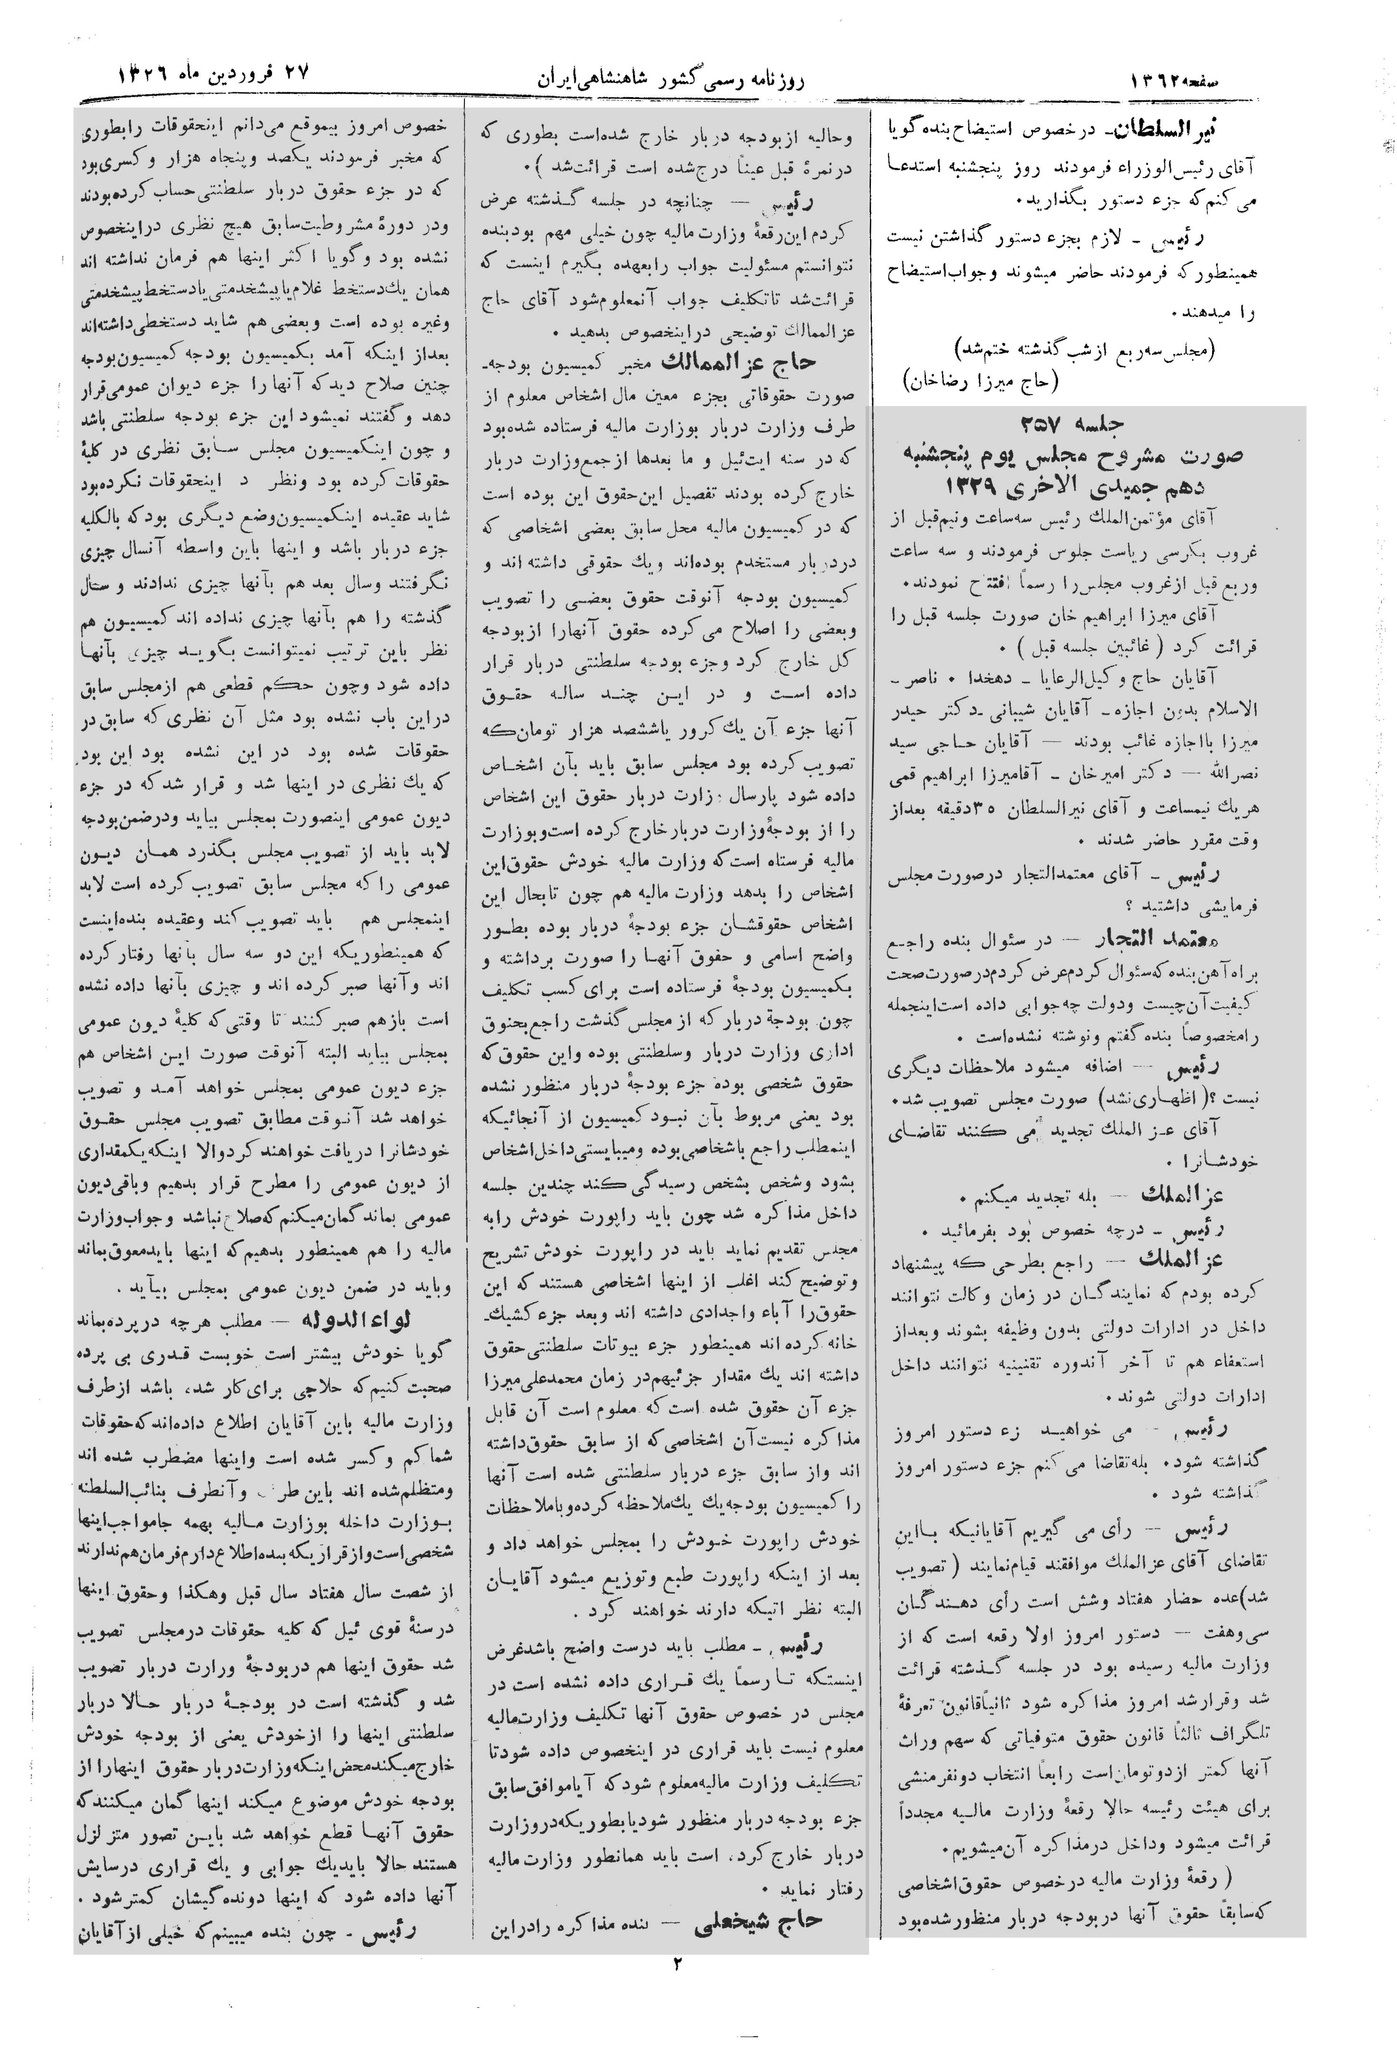 صفحه ۱۳۶۲
روزنامه رسمی کشور شاهنشاهی ایران
۲۷ فروردین ماه ۱۳۲۶
نیر السلطان ـ در خصوص استیضاح بنده گویا
آقای رئیس الوزراء فرمودند روز پنجشنبه استدعا
می کنم که جزء دستور بگذارید.
رئیس ـ لازم بجزء دستور گذاشتن نیست
همینطور که فرمودند حاضر میشوند و جواب استیضاح
را میدهند.
(مجلس سه ربع از شب گذشته ختم شد)
(حاج میرزا رضاخان)
جلسه ۲۵۷
صورت مشروح مجلس یوم پنجشنبه
دهم جمیدی الاخری ۱۳۲۹
آقای مؤتمن الملك رئیس سه ساعت و نیم قبل از
غروب بکرسی ریاست جلوس فرمودند و سه ساعت
وربع قبل از غروب مجلس را رسماً افتتح نمودند.
آقای میرزا ابراهیم خان صورت جلسه قبل را
قرائت کرد ( غائبین جلسه قبل ) .
آقایان حاج وکیل الرعایا ـ دهخدا . ناصر ـ
الاسلام بدون اجازه ـ آقایان شیبانی ـ دکتر حیدر
میرزا بااجازه غائب بودند — آقایان حاجی سید
نصرالله — دکتر امیرخان ـ آقامیرزا ابراهیم قمی
هریك نیمساعت و آقای نیرالسلطان ۳۵ دقیقه بعداز
وقت مقرر حاضر شدند .
رئیس ـ آقای معتمدالتجار درصورت مجلس
فرمایشی داشتید ؟
معتمد التجار — در سئوال بنده راجع
براه آهن بنده که سئوال کردم عرض کردم درصورت صحت
کیفیت آن چیست ودولت چه جوابی داده است اینجمله
رامخصوصاً بنده گفتم ونوشته نشده است .
رئیس — اضافه میشود ملاحظات دیگری
نیست ؟ ( اظهاری نشد) صورت مجلس تصویب شد.
آقای عز الملك تجدید می کنند تقاضای
خودشانرا .
عز الملك — بله تجدید میکنم .
رئیس ـ درچه خصوص بود بفرمائید .
عز الملك — راجع بطرحی که پیشنهاد
کرده بودم که نمایندگان در زمان وکالت نتوانند
داخل در ادارات دولتی بدون وظیفه بشوند وبعداز
استعفاء هم تا آخر آندوره تقنینیه نتوانند داخل
ادارات دولتی شوند.
رئیس — می خواهید زء دستور امروز
گذاشته شود. بله تقاضا می کنم جزء دستور امروز
گذاشته شود .
رئیس — رأی می گیریم آقایانیکه باین
تقاضای آقای عزالملك موافقند قیام نمایند ( تصویب
شد) عده حضار هفتاد وشش است رأی دهندگان
سی وهفت — دستور امروز اولا رقعه است که از
وزارت مالیه رسیده بود در جلسه گذشته قرائت
شد وقرار شد امروز مذاکره شود ثانیاً قانون تعرفهٔ
تلگراف ثالثاً قانون حقوق متوفیاتی که سهم وراث
آنها کمتر ازدوتومان است رابعاً انتخاب دونفر منشی
برای هیئت رئیسه حالا رقعهٔ وزارت مالیه مجدداً
قرائت میشود وداخل درمذاکره آن میشویم.
( رقعهٔ وزارت مالیه درخصوص حقوق اشخاصی
که سابقاً حقوق آنها در بودجه دربار منظور شده بود
وحالیه ازبودجه دربار خارج شده است بطوری که
درنمرهٔ قبل عیناً درج شده است قرائت شد ) .
رئیس — چنانچه در جلسه گذشته عرض
کردم این رقعهٔ وزارت مالیه چون خیلی مهم بود بنده
نتوانستم مسئولیت جواب رابعهده بگیرم اینست که
قرائت شد تا تکلیف جواب آن معلوم شود آقای حاج
عزالممالك توضیحی دراینخصوص بدهید .
حاج عز الممالك مخبر کمیسیون بودجه ـ
صورت حقوقاتی بجزء معین مال اشخاص معلوم از
طرف وزارت دربار بوزارت مالیه فرستاده شده بود
که در سنه ایت ئیل و ما بعدها از جمع وزارت دربار
خارج کرده بودند تفصیل این حقوق این بوده است
که در کمیسیون مالیه محل سابق بعضی اشخاصی که
دردربار مستخدم بوده اند ویك حقوقی داشته اند و
کمیسیون بودجه آنوقت حقوق بعضی را تصویب
وبعضی را اصلاح می کرده حقوق آنهارا از بودجه
کل خارج کرد وجزء بودجه سلطنتی دربار قرار
داده است و در این چند ساله حقوق
آنها جزء آن یك کرور یاششصد هزار تومان که
تصویب کرده بود مجلس سابق باید بآن اشخاص
داده شود پارسال وزارت دربار حقوق این اشخاص
را از بودجهٔ وزارت دربار خارج کرده است وبوزارت
مالیه فرستاه است که وزارت مالیه خودش حقوق این
اشخاص را بدهد وزارت مالیه هم چون تابحال این
اشخاص حقوقشان جزء بودجهٔ دربار بوده بطور
واضح اسامی و حقوق آنها را صورت برداشته و
بکمیسیون بودجهٔ فرستاده است برای کسب تکلیف
چون بودجهٔ دربار که از مجلس گذشت راجع بحقوق
اداری وزارت دربار وسلطنتی بوده واین حقوق که
حقوق شخصی بوده جزء بودجهٔ دربار منظور نشده
بود یعنی مربوط بآن نبود کمیسیون از آنجائیکه
اینمطلب راجع باشخاصی بوده ومیبایستی داخل اشخاص
بشود وشخص بشخص رسیدگی کند چندین جلسه
داخل مذاکره شد چون باید راپورت خودش رابه
مجلس تقدیم نماید باید در راپورت خودش تشریح
وتوضیح کند اغلب از اینها اشخاصی هستند که این
حقوق را آباء واجدادی داشته اند وبعد جزء کشیك ـ
خانه کرده اند همینطور جزء بیوتات سلطنتی حقوق
داشته اند یك مقدار جزئیهم در زمان محمدعلی میرزا
جزء آن حقوق شده است که معلوم است آن قابل
مذاکره نیست آن اشخاصی که از سابق حقوق داشته
اند واز سابق جزء دربار سلطنتی شده است آنها
را کمیسیون بودجه یك یك ملاحظه کرده وباملاحظات
خودش راپورت خودش را بمجلس خواهد داد و
بعد از اینکه راپورت طبع وتوزیع میشود آقایان
البته نظر اتیکه دارند خواهند کرد .
رئیس ـ مطلب باید درست واضح باشد غرض
اینستکه تا رسماً یك قراری داده نشده است در
مجلس در خصوص حقوق آنها تکلیف وزارت مالیه
معلوم نیست باید قراری در اینخصوص داده شود تا
تکلیف وزارت مالیه معلوم شود که آیا موافق سابق
جزء بودجه دربار منظور شود یا بطوریکه در وزارت
دربار خارج کرده است باید همانطور وزارت مالیه
رفتار نماید .
حاج شیخعلی — بنده مذاکره را در این
خصوص امروز بیموقع می دانم اینحقوقات را بطوری
که مخبر فرمودند یکصد وپنجاه هزار وکسری بود
که در جزء حقوق دربار سلطنتی حساب کرده بودند
ودر دورهٔ مشروطیت سابق هیچ نظری دراینخصوص
نشده بود وگویا اکثر اینها هم فرمان نداشته اند
همان یك دستخط غلام یا پیشخدمتی یا دستخط پیشخدمتی
وغیره بوده است وبعضی هم شاید دستخطی داشته اند
بعد از اینکه آمد بکمیسیون بودجه کمیسیون بودجه
چنین صلاح دید که آنها را جزء دیوان عمومی قرار
دهد وگفتند نمیشود این جزء بودجه سلطنتی باشد
و چون اینکمیسیون مجلس سابق نظری در کلیهٔ
حقوقات کرده بود ونظر د اینحقوقات نکرده بود
شاید عقیده اینکمیسیون وضع دیگری بود که بالکلیه
جزء دربار باشد و اینها باین واسطه آنسال چیزی
نگرفتند وسال بعد هم بآنها چیزی ندادند و سال
گذشته را هم بآنها چیزی نداده اند کمیسیون هم
نظر باین ترتیب نمیتوانست بگوید چیزی بآنها
داده شود وچون حکم قطعی هم از مجلس سابق
دراین باب نشده بود مثل آن نظری که سابق در
حقوقات شده بود در این نشده بود این بود
که یك نظری در اینها شد و قرار شد که در جزء
دیون عمومی اینصورت بمجلس بیاید ودرضمن بودجه
لابد باید از تصویب مجلس بگذرد همان دیون
عمومی را که مجلس سابق تصویب کرده است لابد
اینمجلس هم باید تصویب کند وعقیده بنده اینست
که همینطوریکه این دو سه سال بآنها رفتار کرده
اند وآنها صبر کرده اند و چیزی بآنها داده نشده
است بازهم صبر کنند تا وقتی که کلیهٔ دیون عمومی
بمجلس بیاید البته آنوقت صورت این اشخاص هم
جزء دیون عمومی بمجلس خواهد آمد و تصویب
خواهد شد آنوقت مطابق تصویب مجلس حقوق
خودشانرا دریافت خواهند کرد والا اینکه یکمقداری
از دیون عمومی را مطرح قرار بدهیم وباقی دیون
عمومی بماند گمان میکنم که صلاح نباشد وجواب وزارت
مالیه را هم همینطور بدهیم که اینها باید معوق بماند
وباید در ضمن دیون عمومی بمجلس بیآید .
لواء الدوله — مطلب هرچه در پرده بماند
گویا خودش بیشتر است خوبست قدری بی پرده
صحبت کنیم که حلاجی برای کار شده باشد از طرف
وزارت مالیه باین آقایان اطلاع داده اند که حقوقات
شما کم و کسر شده است واینها مضطرب شده اند
ومتظلم شده اند باین طرف وآنطرف بنائب السلطنه
بوزارت داخله بوزارت مالیه بهمه جا مواجب اینها
شخصی است واز قراریکه بنده اطلاع دارم فرمان هم ندارند
از شصت سال هفتاد سال قبل وهکذا وحقوق اینها
درسنهٔ قوی ئیل که کلیه حقوقات درمجلس تصویب
شد حقوق اینها هم در بودجهٔ وزارت دربار تصویب
شد و گذشته است در بودجهٔ دربار حالا دربار
سلطنتی اینها را از خودش یعنی از بودجه خودش
خارج میکند محض اینکه وزارت دربار حقوق اینهارا از
بودجه خودش موضوع میکند اینها گمان میکنند که
حقوق آنها قطع خواهد شد باین تصور متزلزل
هستند حالا باید یك جوابی و یك قراری درسایش
آنها داده شود که اینها دونده گیشان کمتر شود .
رئیس ـ چون بنده میبینم که خیلی از آقایان
۲